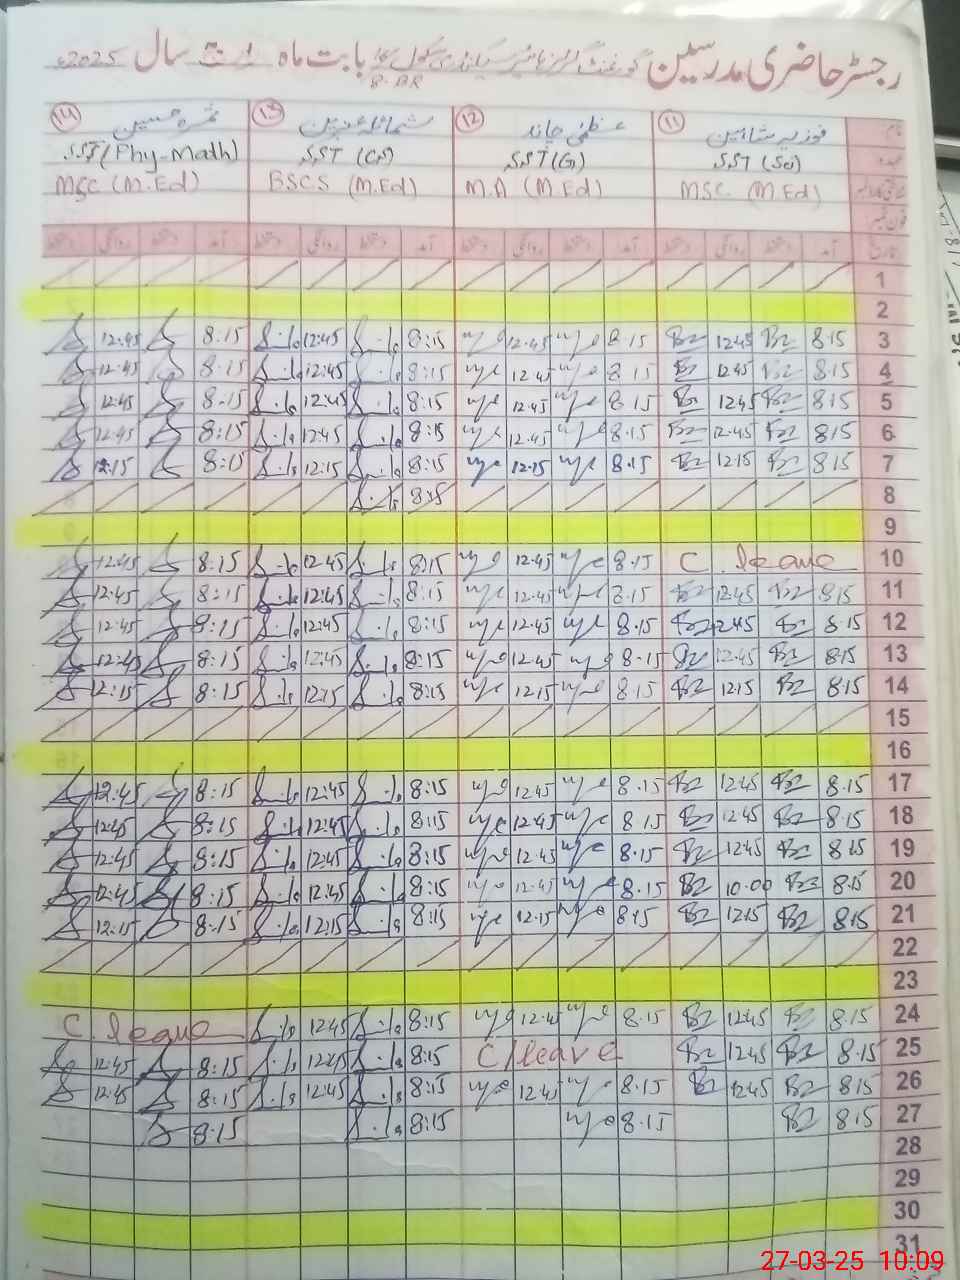 رجسٹر حاضری مدرسین گورنمنٹ گرلز ہائیر سیکنڈری سکول بابت ماہ مارچ سال 2025ء
8-BR
نام فوزیہ شاہین ⑪ عظمیٰ چاند ⑫ شمائلہ عنبرین ⑬ ثمرہ حسین ⑭
عہدہ SST (Sci) SST (G) SST (CS) SST (Phy-Math)
MSC (M.Ed) M.A (M.Ed) BSCS (M.Ed) MSC (M.Ed)
تاریخ آمد دستخط روانگی دستخط آمد دستخط روانگی دستخط آمد دستخط روانگی دستخط آمد دستخط روانگی دستخط
1
2
3 8.15 12.45 8.15 12.45 8:15 12:45 8:15 12:45
4 8.15 12.45 8.15 12.45 8:15 12:45 8:15 12:45
5 8.15 12.45 8.15 12.45 8:15 12:45 8:15 12:45
6 8.15 12.45 8.15 12.45 8:15 12:45 8:15 12:45
7 8.15 12.15 8.15 12.15 8:15 12:15 8:15 12:15
8 8:15
9
10 C. leave 8.15 12.45 8:15 12:45 8:15 12:45
11 8.15 12.45 8.15 12.45 8:15 12:45 8:15 12:45
12 8.15 12.45 8.15 12.45 8:15 12:45 8:15 12:45
13 8.15 12.45 8.15 12.45 8:15 12:45 8:15 12:45
14 8.15 12.15 8.15 12.15 8:15 12:15 8:15 12:15
15
16
17 8.15 12.45 8.15 12.45 8:15 12:45 8:15 12:45
18 8.15 12.45 8.15 12.45 8:15 12:45 8:15 12:45
19 8.15 12.45 8.15 12.45 8:15 12:45 8:15 12:45
20 8.15 10.00 8.15 12.45 8:15 12:45 8:15 12:45
21 8.15 12.15 8.15 12.15 8:15 12:15 8:15 12:15
22
23
24 8.15 12.45 8.15 12.45 8:15 12:45 C. leave
25 8.15 12.45 C/leave 8:15 12:45 8:15 12:45
26 8.15 12.45 8.15 12.45 8:15 12:45 8:15 12:45
27 8.15 8.15 8:15 8:15
28
29
30
31
27-03-25 10:09